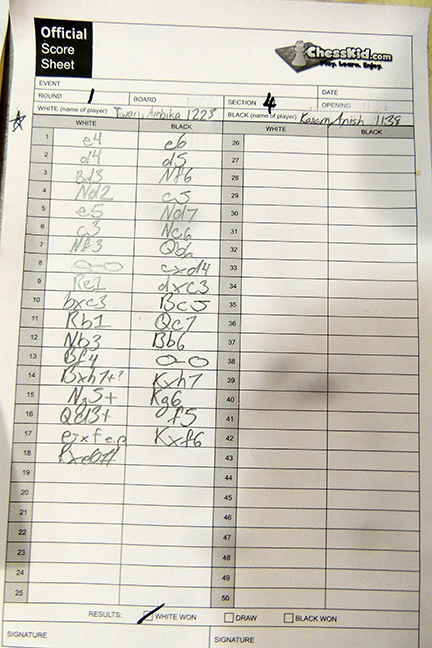 Official
Score
Sheet
ChessKid.com
Play. Learn. Enjoy.
EVENT
DATE
ROUND 1 BOARD SECTION 4 OPENING
WHITE (name of player) Tiwari, Ambika 1223 BLACK (name of player) Kasam, Anish 1138
WHITE BLACK WHITE BLACK
1 e4 e6 26
2 d4 d5 27
3 Bd3 Nf6 28
4 Nd2 c5 29
5 e5 Nd7 30
6 c3 Nc6 31
7 Nf3 Qb6 32
8 0-0 cxd4 33
9 Re1 dxc3 34
10 bxc3 Bc5 35
11 Rb1 Qc7 36
12 Nb3 Bb6 37
13 Bf4 0-0 38
14 Bxh7+? Kxh7 39
15 Ng5+ Kg6 40
16 Qd3+ f5 41
17 exf e.p Kxf6 42
18 Rxe6# 43
19 44
20 45
21 46
22 47
23 48
24 49
25 50
RESULTS: WHITE WON DRAW BLACK WON
SIGNATURE SIGNATURE